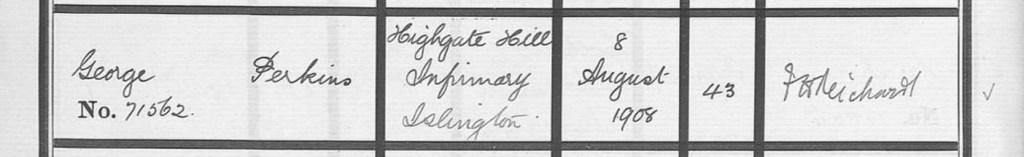 George Perkins
No. 71562.
Highgate Hill
Infirmary
Islington
8
August
1908
43